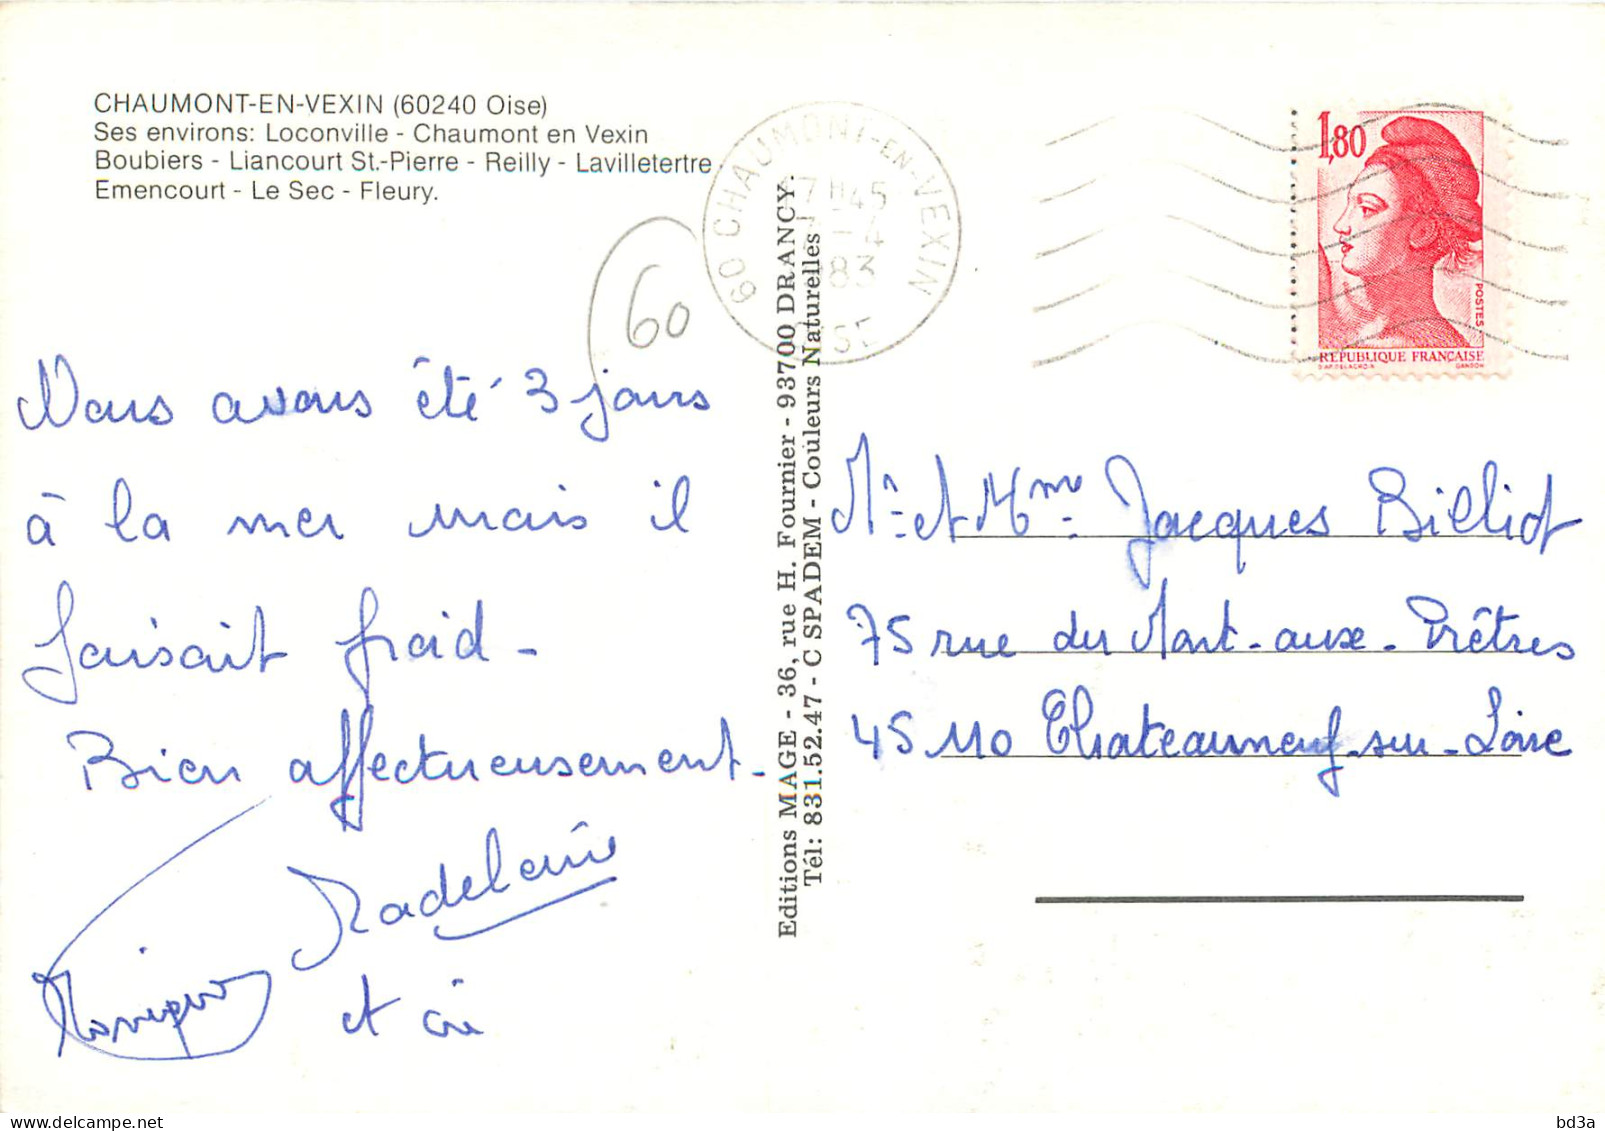 CHAUMONT-EN-VEXIN (60240 Oise)
Ses environs: Loconville - Chaumont en Vexin
Boubiers - Liancourt St.-Pierre - Reilly - Lavilletertre
Emencourt - Le Sec - Fleury.
60
Nous avons été 3 jours
à la mer mais il
faisait froid -
Bien affectueusement -
Madeleine
et cie
Monique
Editions MAGE - 36, rue H. Fournier - 93700 DRANCY.
Tél: 831.52.47 - C SPADEM - Couleurs Naturelles
60 CHAUMONT-EN-VEXIN
17 H 45
-4
83
OISE
1,80
POSTES
REPUBLIQUE FRANÇAISE
D'AP. DELACROIX GANDON
Mr et Mme Jacques Billiot
75 rue du Mont-aux-Prêtres
45110 Chateauneuf-sur-Loire
delcampe.net
bd3a